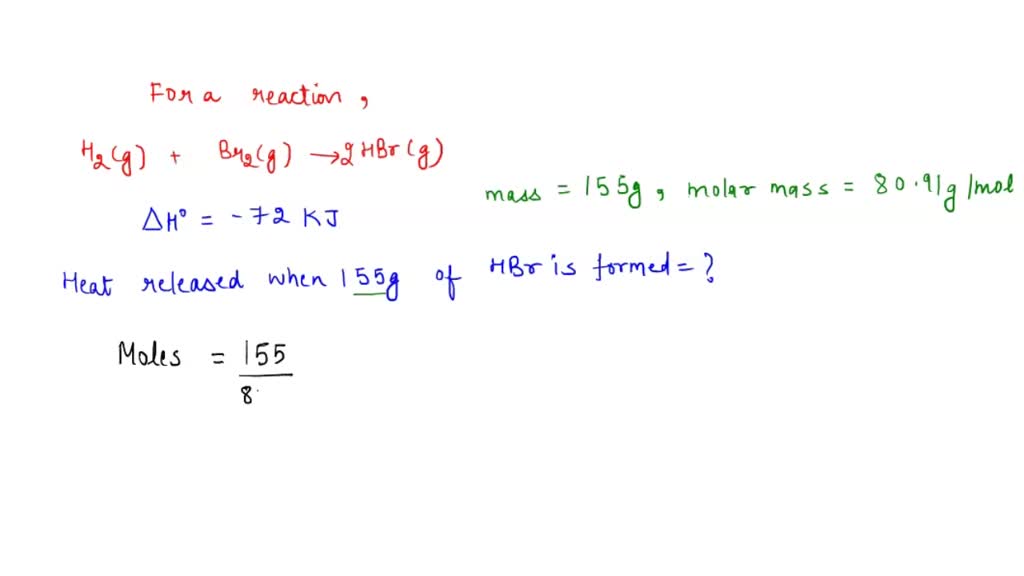 For a reaction,
H₂(g) + Br₂(g) → 2 HBr(g)
mass = 155g, molar mass = 80.91g/mol
ΔH° = -72 KJ
Heat released when 155g of HBr is formed = ?
Moles = 155
8.